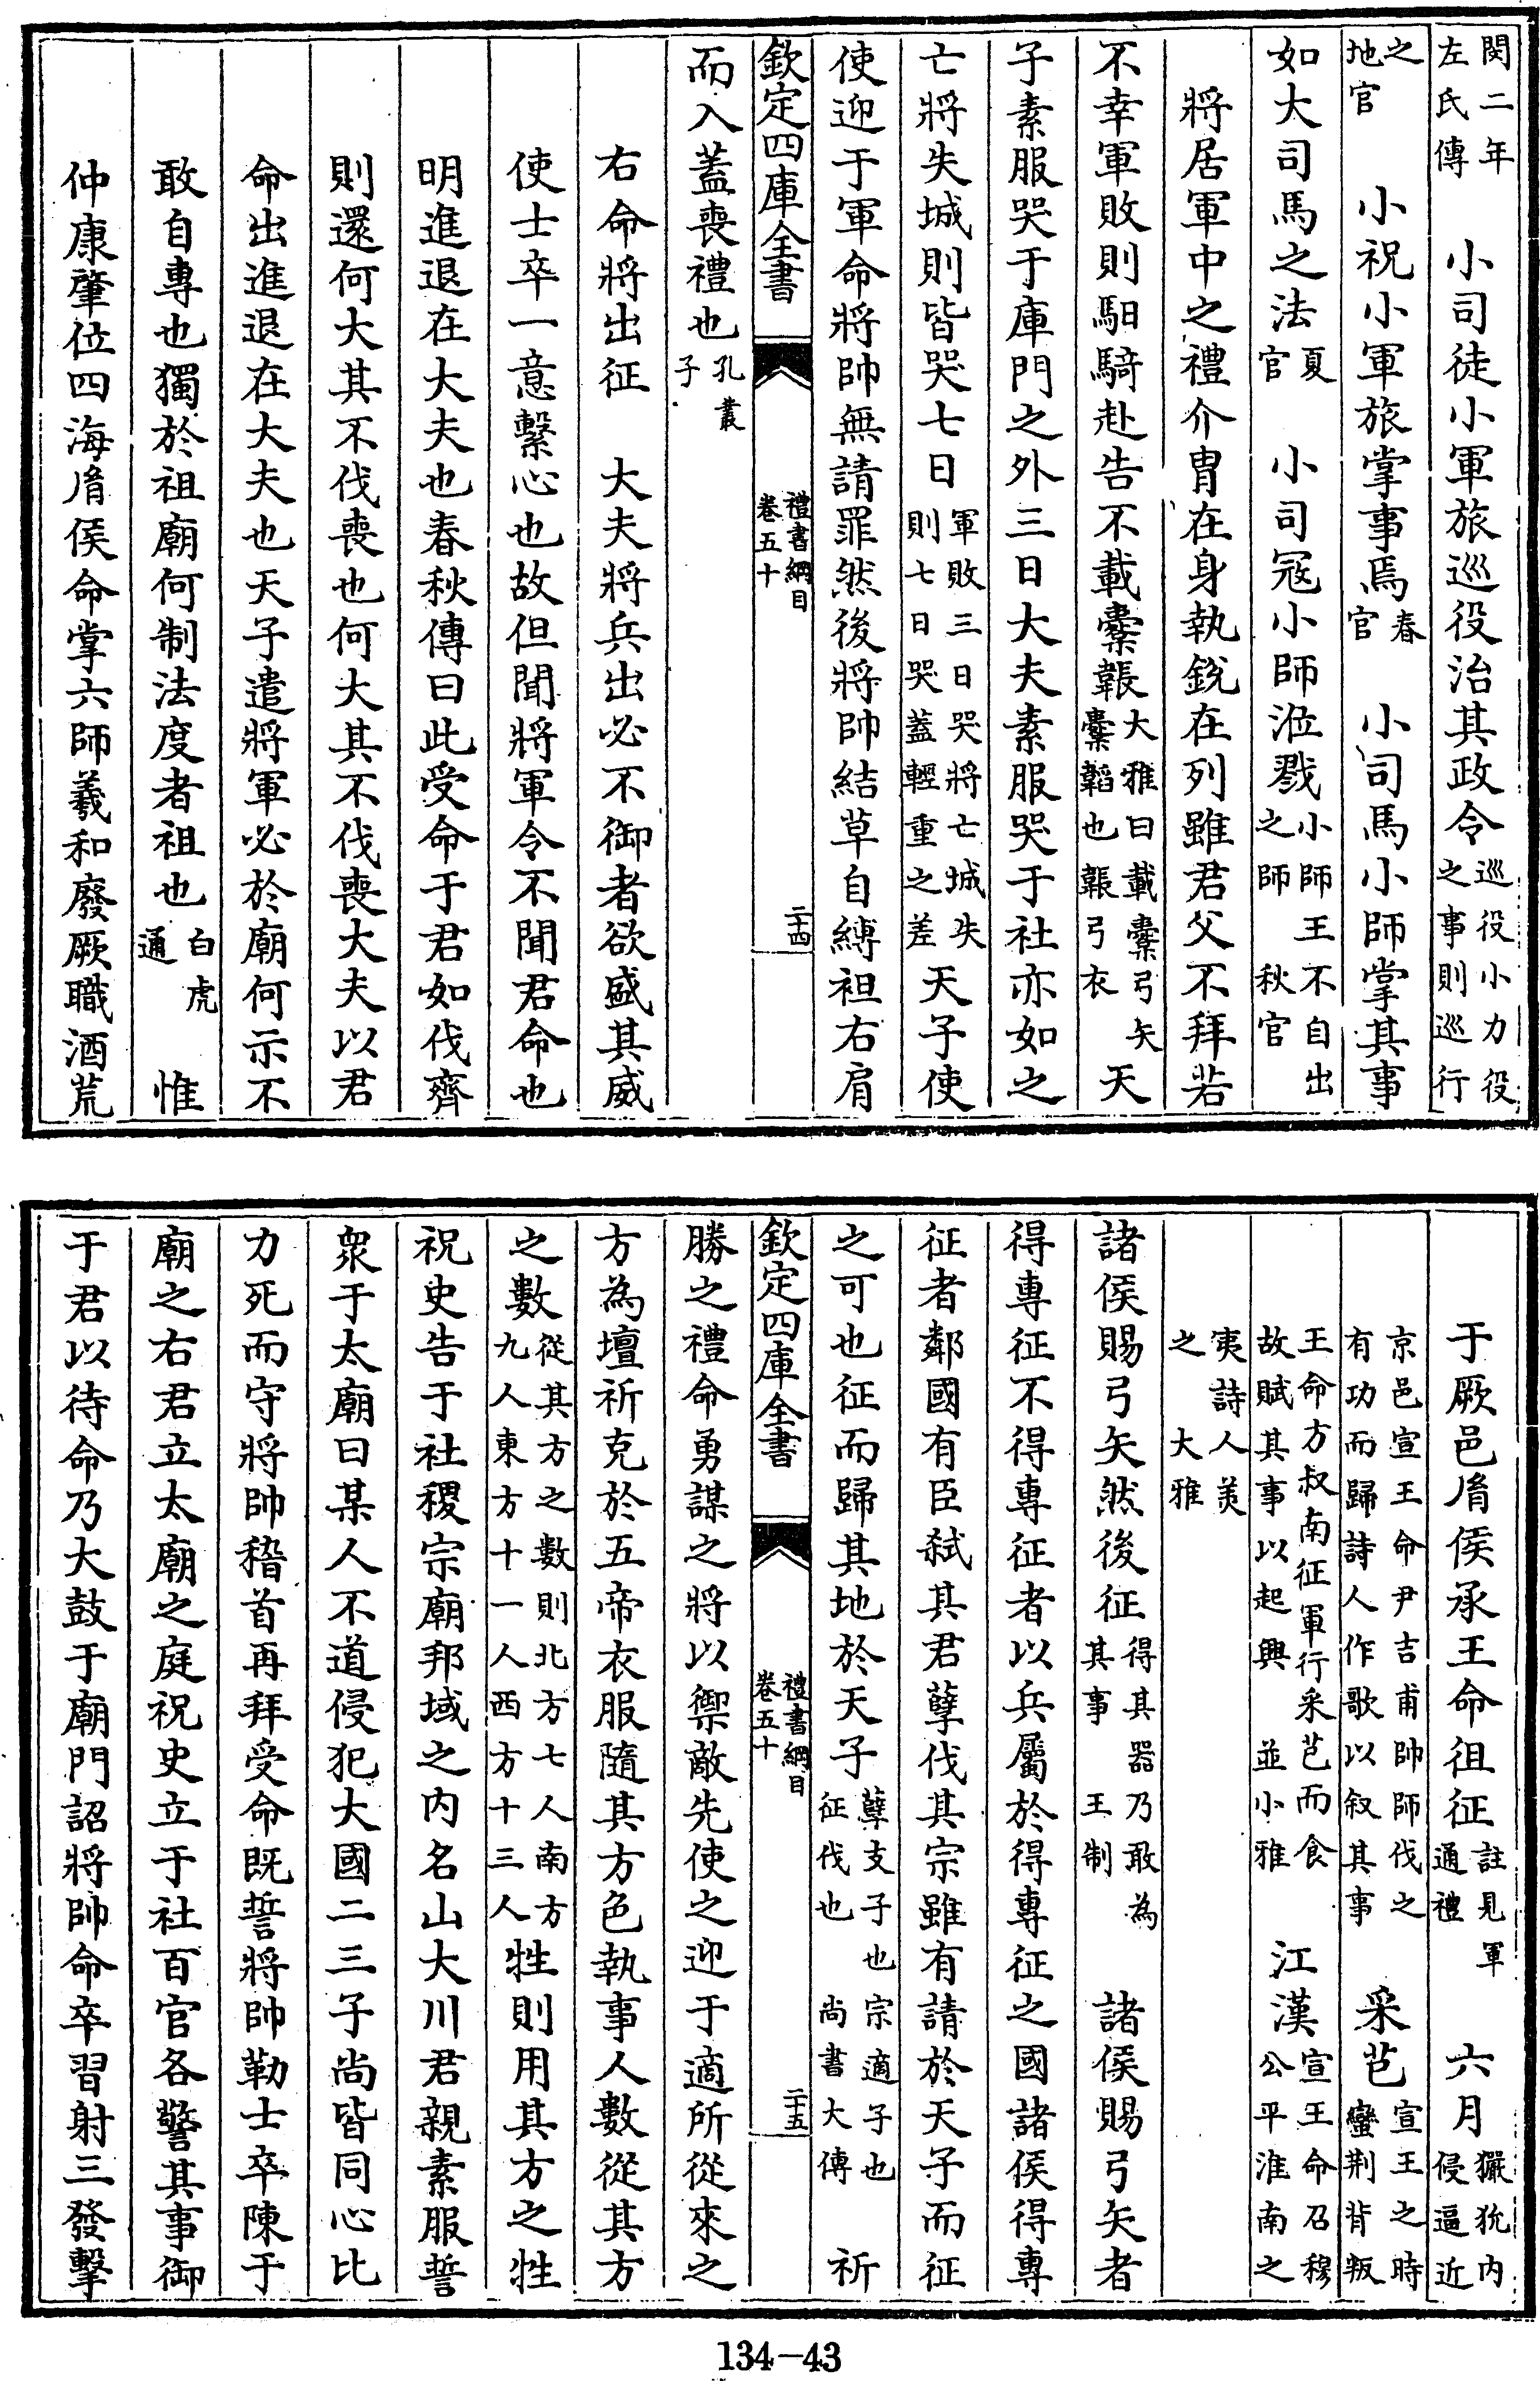 閔二年左氏傳　小司徒小軍旅巡役治其政令巡役小力役之事則巡行
之地官　小祝小軍旅掌事焉春官　小司馬小師掌其事
如大司馬之法夏官　小司寇小師涖戮小師王不自出之師　秋官
將居軍中之禮介胄在身執銳在列雖君父不拜若
不幸軍敗則馹騎赴告不載櫜韔大雅曰載櫜弓矢櫜韜也韔弓衣　天
子素服哭于庫門之外三日大夫素服哭于社亦如之
亡將失城則皆哭七日軍敗三日哭將亡城失則七日哭蓋輕重之差天子使
使迎于軍命將帥無請罪然後將帥結草自縛袒右肩
欽定四庫全書　禮書綱目卷五十　二十四
而入蓋喪禮也孔叢子
右命將出征　大夫將兵出必不御者欲盛其威
使士卒一意繫心也故但聞將軍令不聞君命也
明進退在大夫也春秋傳曰此受命于君如伐齊
則還何大其不伐喪也何大其不伐喪大夫以君
命出進退在大夫也天子遣將軍必於廟何示不
敢自專也獨於祖廟何制法度者祖也白虎通　惟
仲康肇位四海胤侯命掌六師羲和廢厥職酒荒
于厥邑胤侯承王命徂征註見軍通禮　六月玁狁內侵逼近
京邑宣王命尹吉甫帥師伐之有功而歸詩人作歌以叙其事　采芑宣王之時蠻荆背叛
王命方叔南征軍行采芑而食故賦其事以起興　並小雅　江漢宣王命召穆公平淮南之
夷詩人美之　大雅
諸侯賜弓矢然後征得其器乃敢為其事　王制　諸侯賜弓矢者
得專征不得專征者以兵屬於得專征之國諸侯得專
征者鄰國有臣弑其君孽伐其宗雖有請於天子而征
之可也征而歸其地於天子孽支子也宗適子也征伐也　尚書大傳　祈
欽定四庫全書　禮書綱目卷五十　二十五
勝之禮命勇謀之將以禦敵先使之迎于適所從來之
方為壇祈克於五帝衣服隨其方色執事人數從其方
之數從其方之數則北方七人南方九人東方十一人西方十三人牲則用其方之牲
祝史告于社稷宗廟邦域之內名山大川君親素服誓
衆于太廟曰某人不道侵犯大國二三子尚皆同心比
力死而守將帥稽首再拜受命既誓將帥勒士卒陳于
廟之右君立太廟之庭祝史立于社百官各警其事御
于君以待命乃大鼓于廟門詔將帥命卒習射三發擊
134-43